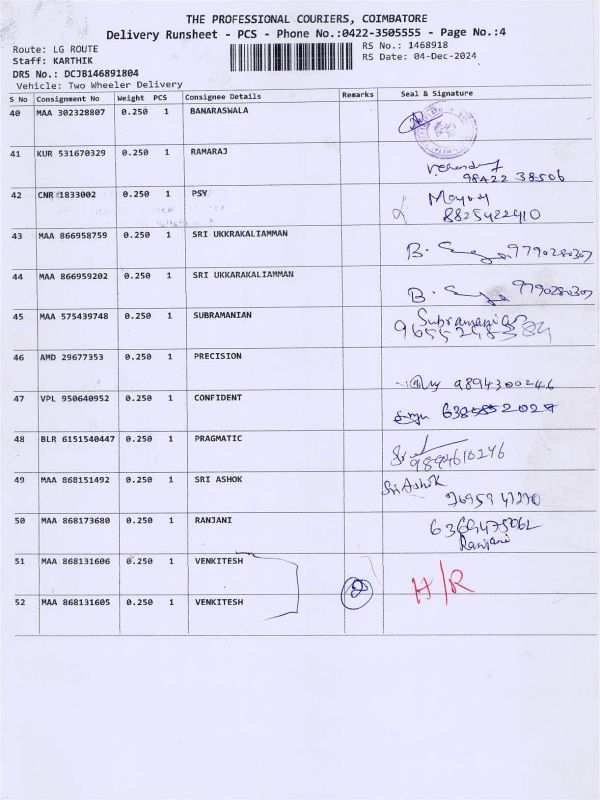 THE PROFESSIONAL COURIERS, COIMBATORE
Delivery Runsheet - PCS - Phone No.:0422-3505555 - Page No.:4
Route: LG ROUTE
RS No.: 1468918
Staff: KARTHIK
RS Date: 04-Dec-2024
DRS No.: DCJB146891804
Vehicle: Two Wheeler Delivery
S No Consignment No Weight PCS Consignee Details Remarks Seal & Signature
40 MAA 302328807 0.250 1 BANARASWALA
41 KUR 531670329 0.250 1 RAMARAJ
98422 38506
42 CNR 1833002 0.250 1 PSY
8825422410
43 MAA 866958759 0.250 1 SRI UKKRAKALIAMMAN
B.
44 MAA 866959202 0.250 1 SRI UKKARAKALIAMMAN
B.
45 MAA 575439748 0.250 1 SUBRAMANIAN
46 AMD 29677353 0.250 1 PRECISION
9894300246
47 VPL 950640952 0.250 1 CONFIDENT
48 BLR 6151540447 0.250 1 PRAGMATIC
9894610246
49 MAA 868151492 0.250 1 SRI ASHOK
Sri Ashik
50 MAA 868173680 0.250 1 RANJANI
Ranjani
51 MAA 868131606 0.250 1 VENKITESH
2 H/R
52 MAA 868131605 0.250 1 VENKITESH